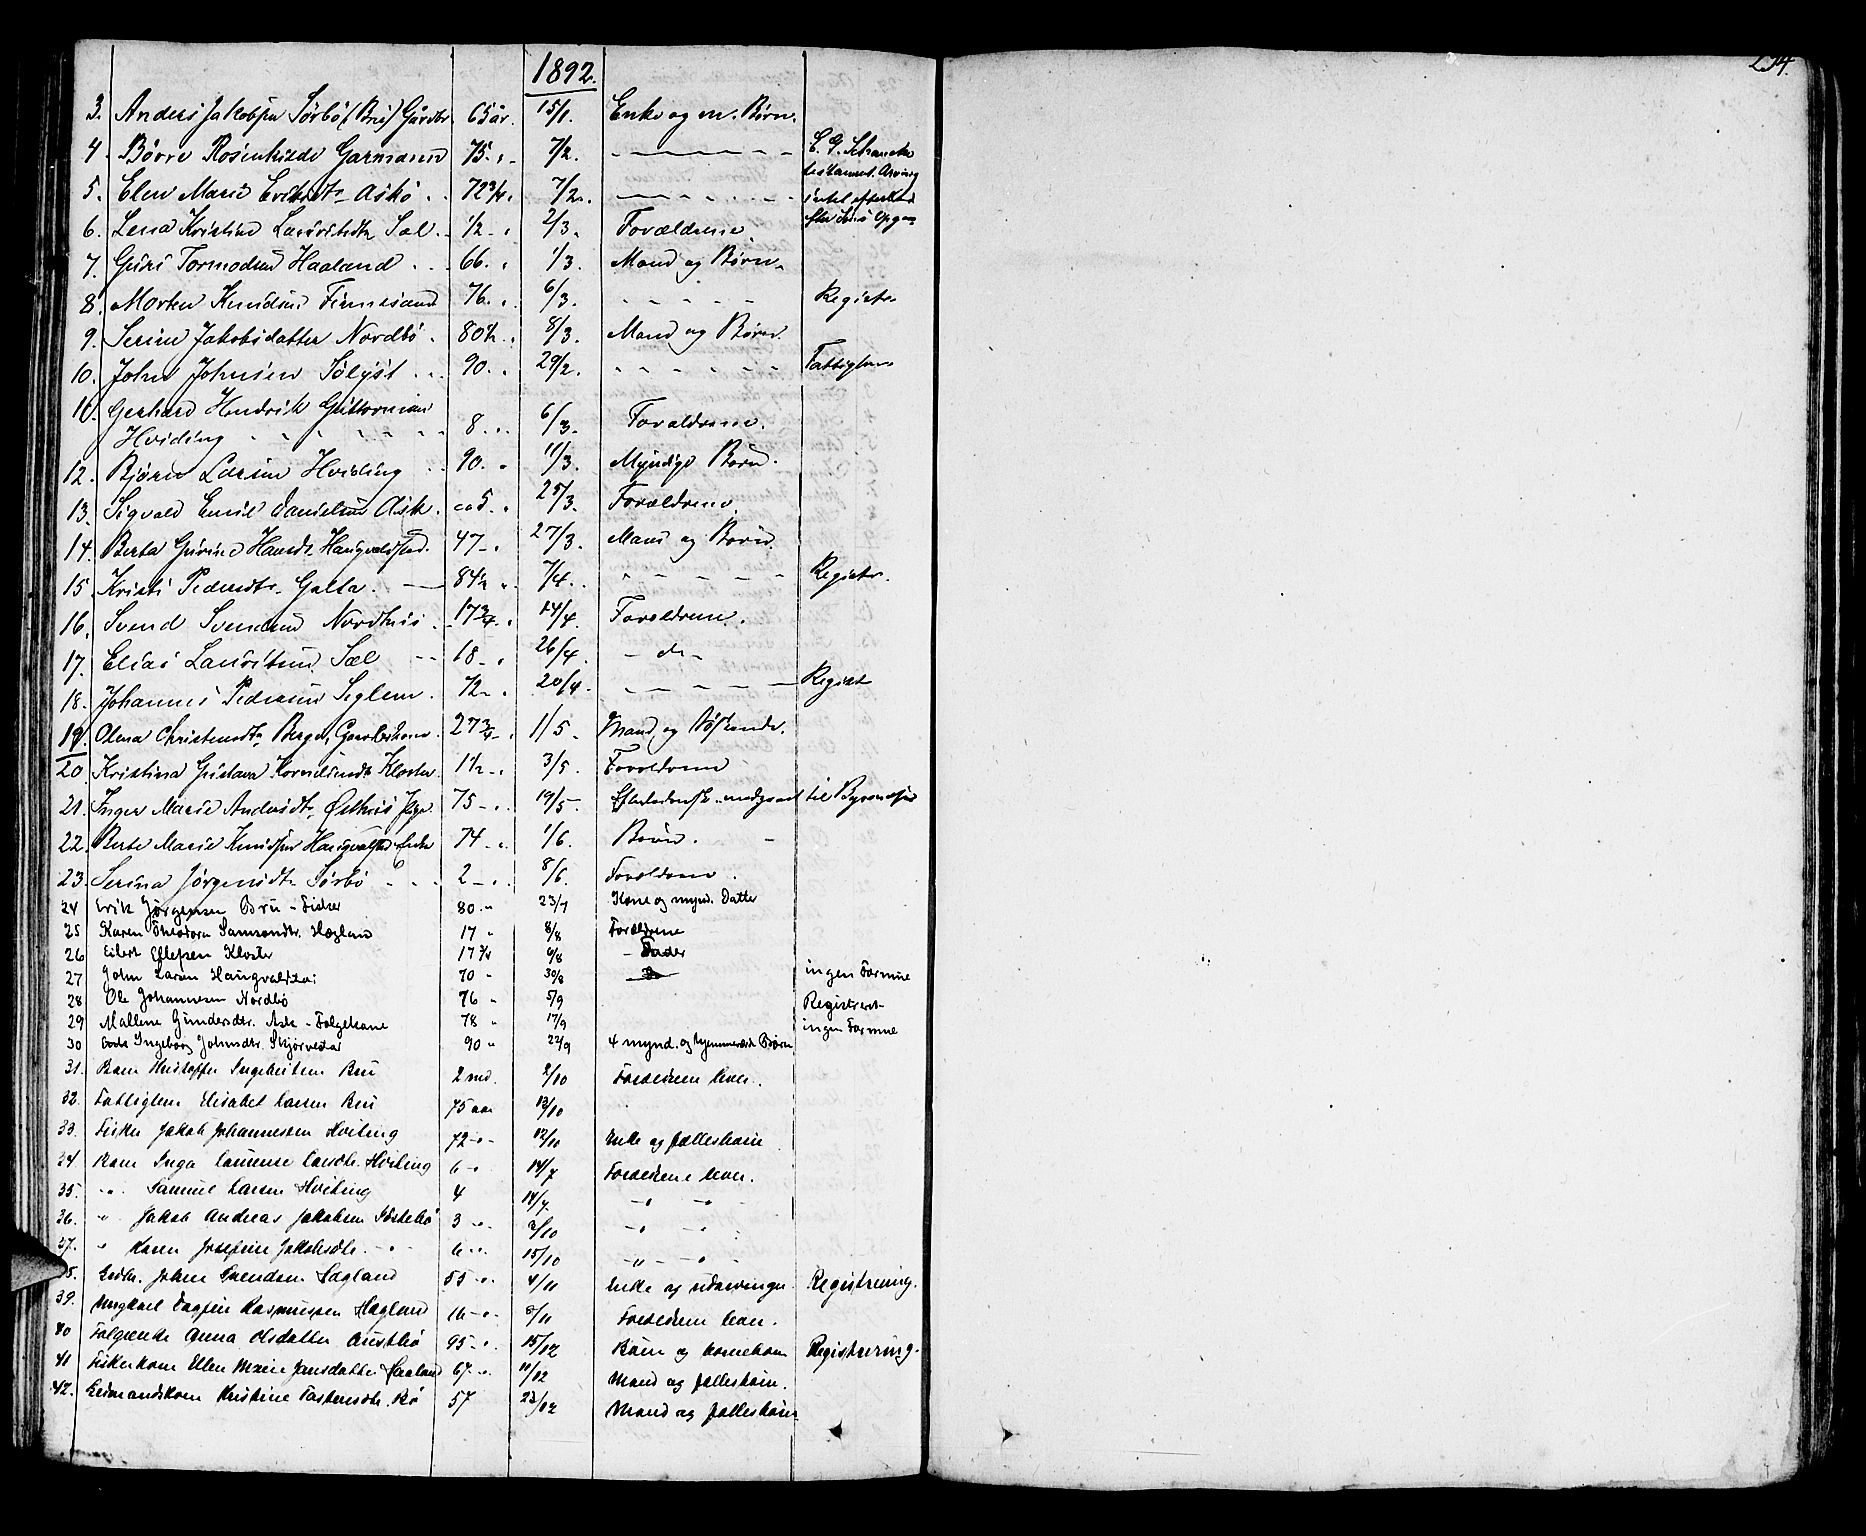 294.
1892.
3. Anders Jakobsen Sørbø (Bru) Gårdbr. 65 år. 15/1. Enke og m. Børn.
4. Børre Rosenkilde Garmann 75. " 7/2. — E. G. Schancke
testament. Arving
5. Elen Marie Eriksdtr. Askø 72 3/4. 7/2. — intet efterladt
efter Opgav
6. Lena Kristine Lauritsdtr Sæl. 1/2 - " 2/3. Forældrene
7. Guri Tormodsen Haaland 66. " 1/3. Mand og Børn.
8. Morten Knudsen Finnesand 76. " 6/3. - - - - Registr.
9. Serine Jakobsdatter Nordbø. 80 1/2. " 8/3. Mand og Børn.
10. John Johnsen Sølyst 90. " 29/2. - - - - Fattiglem
11. Gerhard Hendrik Guttormsen
Hviding 8. " 6/3. Forældrene.
12. Bjørn Larsen Hviding 90. " 11/3. Myndige Børn.
13. Sigvald Emil Danielsen Ask. ca 5. " 25/3. Forældrene.
14. Berta Gurine Hansdtr. Haugvaldstad. 47 - " 27/3. Mand og Børn.
15. Kristi Pedersdtr. Galta. 84 1/2 " 7/4. - - - - Registr.
16. Svend Svendsen Nordhus 17 3/4. " 14/4. Forældrene.
17. Elias Lauritsen Sæl 18 - " 26/4. - do -
18. Johannes Pedersen Seglem. 72 - " 20/4. — Registr
19. Olena Christensdtr. Berge, Gaardbr.kone. 27 3/4 - " 1/5. Mand og Søskende.
20. Kristina Gustava Korneliusdtr Kloster. 1 1/2 - " 3/5. Forældrene
21. Inger Marie Andersdtr. Østhus Pige 75 - " 19/5. modgaaet til
22. Berte Marie Knudsen Haugvalstad Enke 74 - " 1/6. Børn.
23. Serina Jørgensdtr Sørbø 2 - " 8/6. Forældrene.
24 Erik Jørgensen Bru - Fisker 80 " 23/7 Kone og mynd. Datter
25 Karen Theodora Samsondtr. Hægland 17 " 8/8 Forældrene
26 Eilert Ellefsen Kloster 17 3/4 6/8 - Fader
27 John Larsen Haugvaltstad 70 " 30/8 ingen Formue
28 Ole Johannesen Nordbø 76 " 5/9 Registreret
29 Mallene Gundersdtr. Ask - Følgekone 78 " 17/9 ingen Formue
30 Enke Ingeborg Johnsdtr. Skjørvestad 90 " 22/9 4 mynd. og hjemmeværde Børn
31. Barn Kristoffer Ingebretsen Bru 2 md. 2/10 Forældrene lever.
32. Fattiglem Elisabet Larsen Bru 75 aar 13/10
33. Fisker Jakob Johannessen Hviding 72 " 12/10 Enke og fællesbørn
34. Barn Inga Laurense Larsdtr. Hviding 6 " 14/7 Forældrene lever.
35. " Samuel Larsen Hviding 4 14/7 - " - " -
36. " Jakob Andreas Jakobsen Sørbø 3 " 2/10 - " - "
37. " Karen Josefine Jakobsdtr. - " - 6 " 15/10 - " - "
38. Grdbr. Johan Svendsen Hægland 55 " 4/11 Enke og udarvinger Registrering.
39. Ungkarl Dagfin Rasmussen Hægland 16 - " 8/11 Forældrene lever.
40 Følgeenke Anna Olsdatter Austbø 95 " 15/12 Børn og børnebørn Registrering.
41 Fiskerkone Ellen Marie Jansdatter Haaland 67 " 11/12 Mand og fællesbørn.
42. Grdmandskone Kristine Torstensdtr. Bø 57 23/12 Mand og fællesbørn